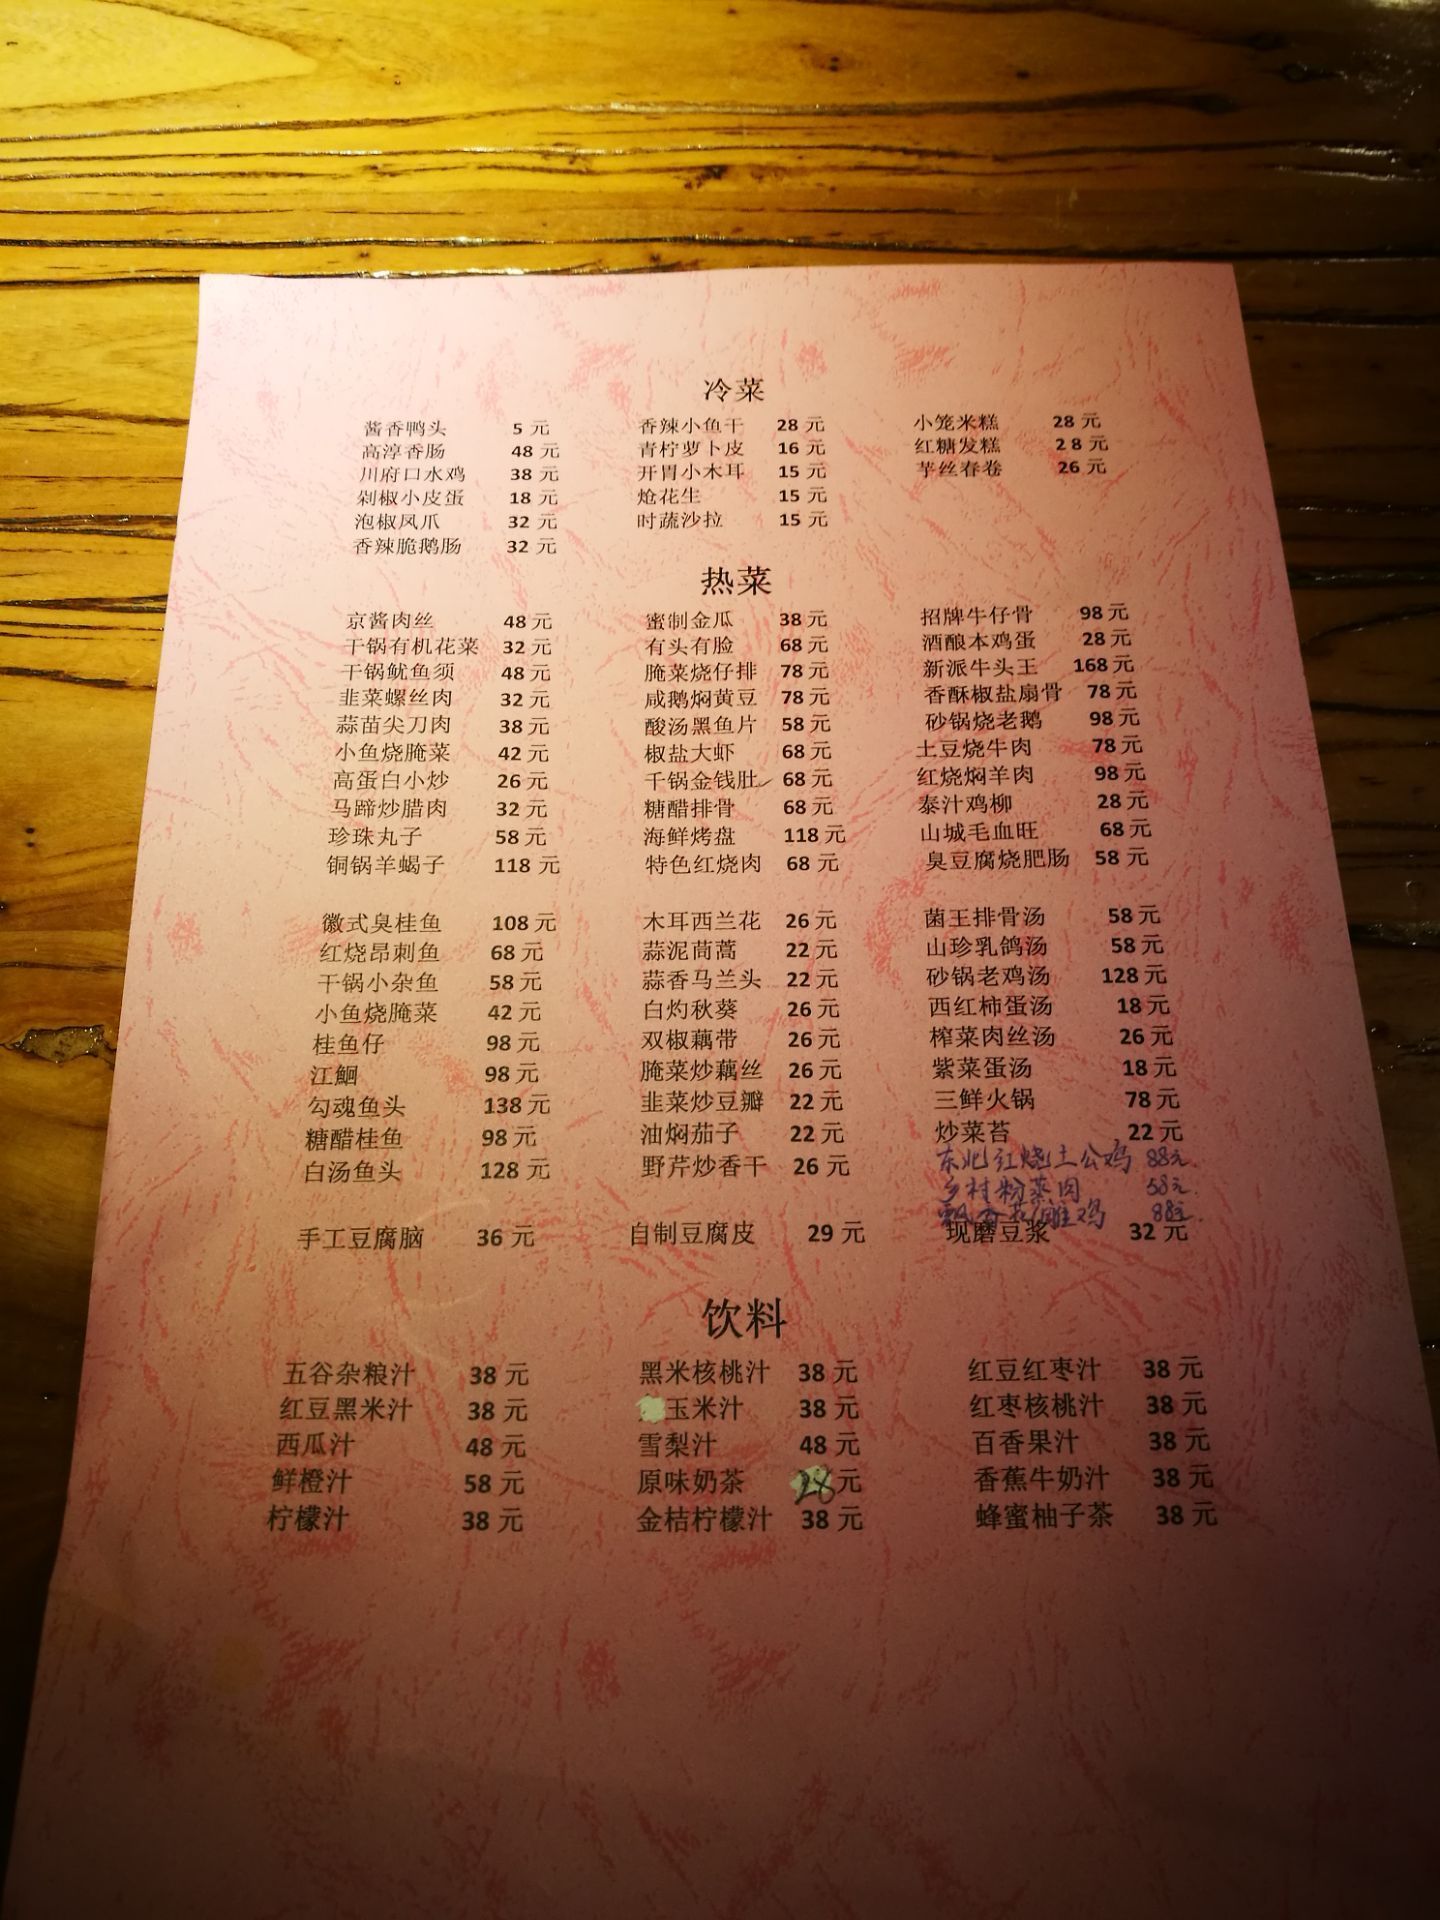 冷菜
酱香鸭头 5 元 香辣小鱼干 28 元 小笼米糕 28 元
高淳香肠 48 元 青柠萝卜皮 16 元 红糖发糕 2 8 元
川府口水鸡 38 元 开胃小木耳 15 元 芋丝春卷 26 元
剁椒小皮蛋 18 元 炝花生 15 元
泡椒凤爪 32 元 时蔬沙拉 15 元
香辣脆鹅肠 32 元
热菜
京酱肉丝 48 元 蜜制金瓜 38 元 招牌牛仔骨 98 元
干锅有机花菜 32 元 有头有脸 68 元 酒酿本鸡蛋 28 元
干锅鱿鱼须 48 元 腌菜烧仔排 78 元 新派牛头王 168 元
韭菜螺丝肉 32 元 咸鹅焖黄豆 78 元 香酥椒盐扇骨 78 元
蒜苗尖刀肉 38 元 酸汤黑鱼片 58 元 砂锅烧老鹅 98 元
小鱼烧腌菜 42 元 椒盐大虾 68 元 土豆烧牛肉 78 元
高蛋白小炒 26 元 千锅金钱肚 68 元 红烧焖羊肉 98 元
马蹄炒腊肉 32 元 糖醋排骨 68 元 泰汁鸡柳 28 元
珍珠丸子 58 元 海鲜烤盘 118 元 山城毛血旺 68 元
铜锅羊蝎子 118 元 特色红烧肉 68 元 臭豆腐烧肥肠 58 元
徽式臭桂鱼 108 元 木耳西兰花 26 元 菌王排骨汤 58 元
红烧昂刺鱼 68 元 蒜泥茼蒿 22 元 山珍乳鸽汤 58 元
干锅小杂鱼 58 元 蒜香马兰头 22 元 砂锅老鸡汤 128 元
小鱼烧腌菜 42 元 白灼秋葵 26 元 西红柿蛋汤 18 元
桂鱼仔 98 元 双椒藕带 26 元 榨菜肉丝汤 26 元
江鮰 98 元 腌菜炒藕丝 26 元 紫菜蛋汤 18 元
勾魂鱼头 138 元 韭菜炒豆瓣 22 元 三鲜火锅 78 元
糖醋桂鱼 98 元 油焖茄子 22 元 炒菜苔 22 元
白汤鱼头 128 元 野芹炒香干 26 元 东北红烧土公鸡 88元.
乡村粉蒸肉 58元.
飘香花雕鸡 88元.
手工豆腐脑 36 元 自制豆腐皮 29 元 现磨豆浆 32 元
饮料
五谷杂粮汁 38 元 黑米核桃汁 38 元 红豆红枣汁 38 元
红豆黑米汁 38 元 玉米汁 38 元 红枣核桃汁 38 元
西瓜汁 48 元 雪梨汁 48 元 百香果汁 38 元
鲜橙汁 58 元 原味奶茶 28 元 香蕉牛奶汁 38 元
柠檬汁 38 元 金桔柠檬汁 38 元 蜂蜜柚子茶 38 元